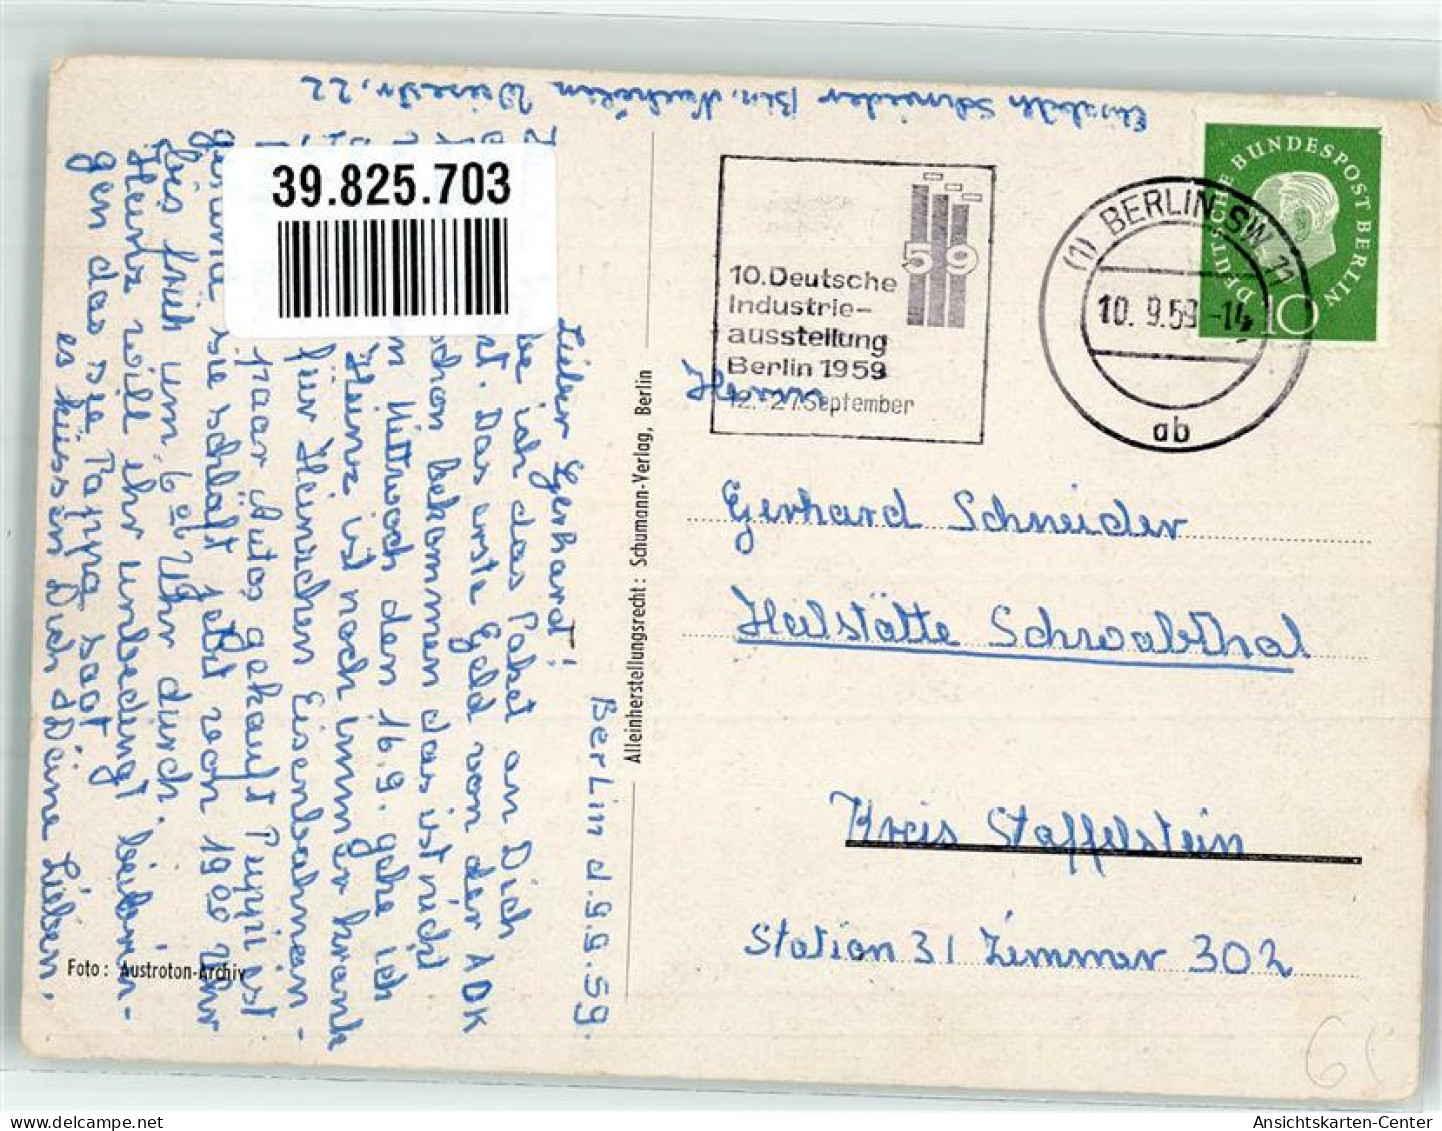 Elisabeth Schneider Bln. Neukölln Weisestr. 22
39.825.703
10. Deutsche
Industrie-
ausstellung
Berlin 1959
12.-27. September
59
(1) BERLIN SW 11
10. 9.59-14
ab
DEUTSCHE BUNDESPOST BERLIN
10
Herrn
Gerhard Schneider
Heilstätte Schwabthal
Kreis Staffelstein
Station 31 Zimmer 302
Alleinherstellungsrecht: Schumann-Verlag, Berlin
Foto: Austroton-Archiv
Berlin d. 9.9.59.
Lieber Gerhard!
be ich das Paket an Dich
t. Das erste Geld von der ADK
chon bekommen das ist nicht
n Mittwoch den 16.9. gehe ich
Heinz ist noch immer krank
für Heinichen Eisenbahnein-
paar Autos gekauft Puppi ist
sie schläft jetzt von 19 00 Uhr
bis früh um 6 00 Uhr durch.
Heinz will ihr unbedingt beibrin-
gen das sie Pappa sagt
es küssen Dich Deine Lieben.
Ansichtskarten-Center